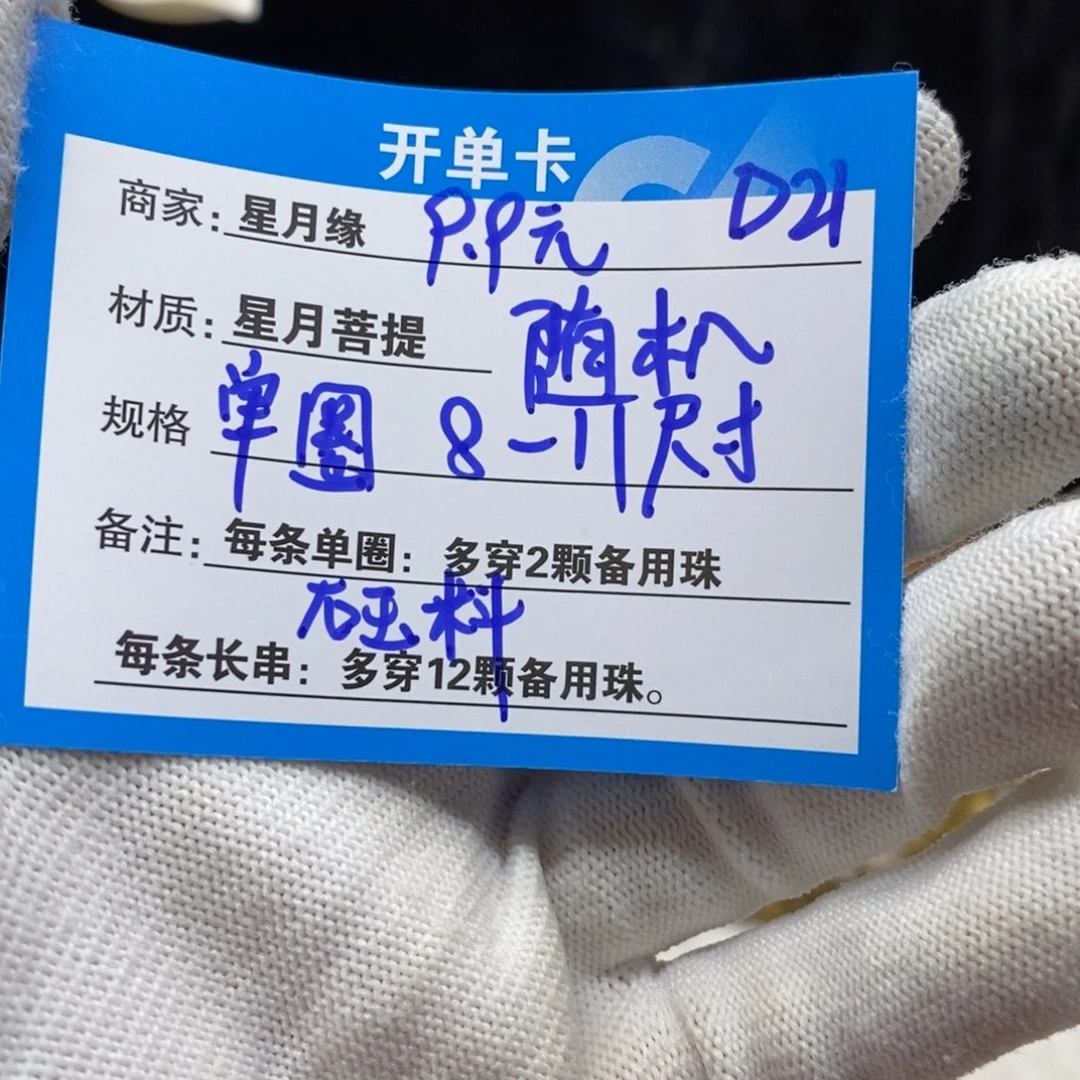 开单卡
商家：星月缘 9.9元 D21
材质：星月菩提 随机
规格 单圈 8-11尺寸
备注：每条单圈：多穿2颗备用珠
每条长串：多穿12颗备用珠。